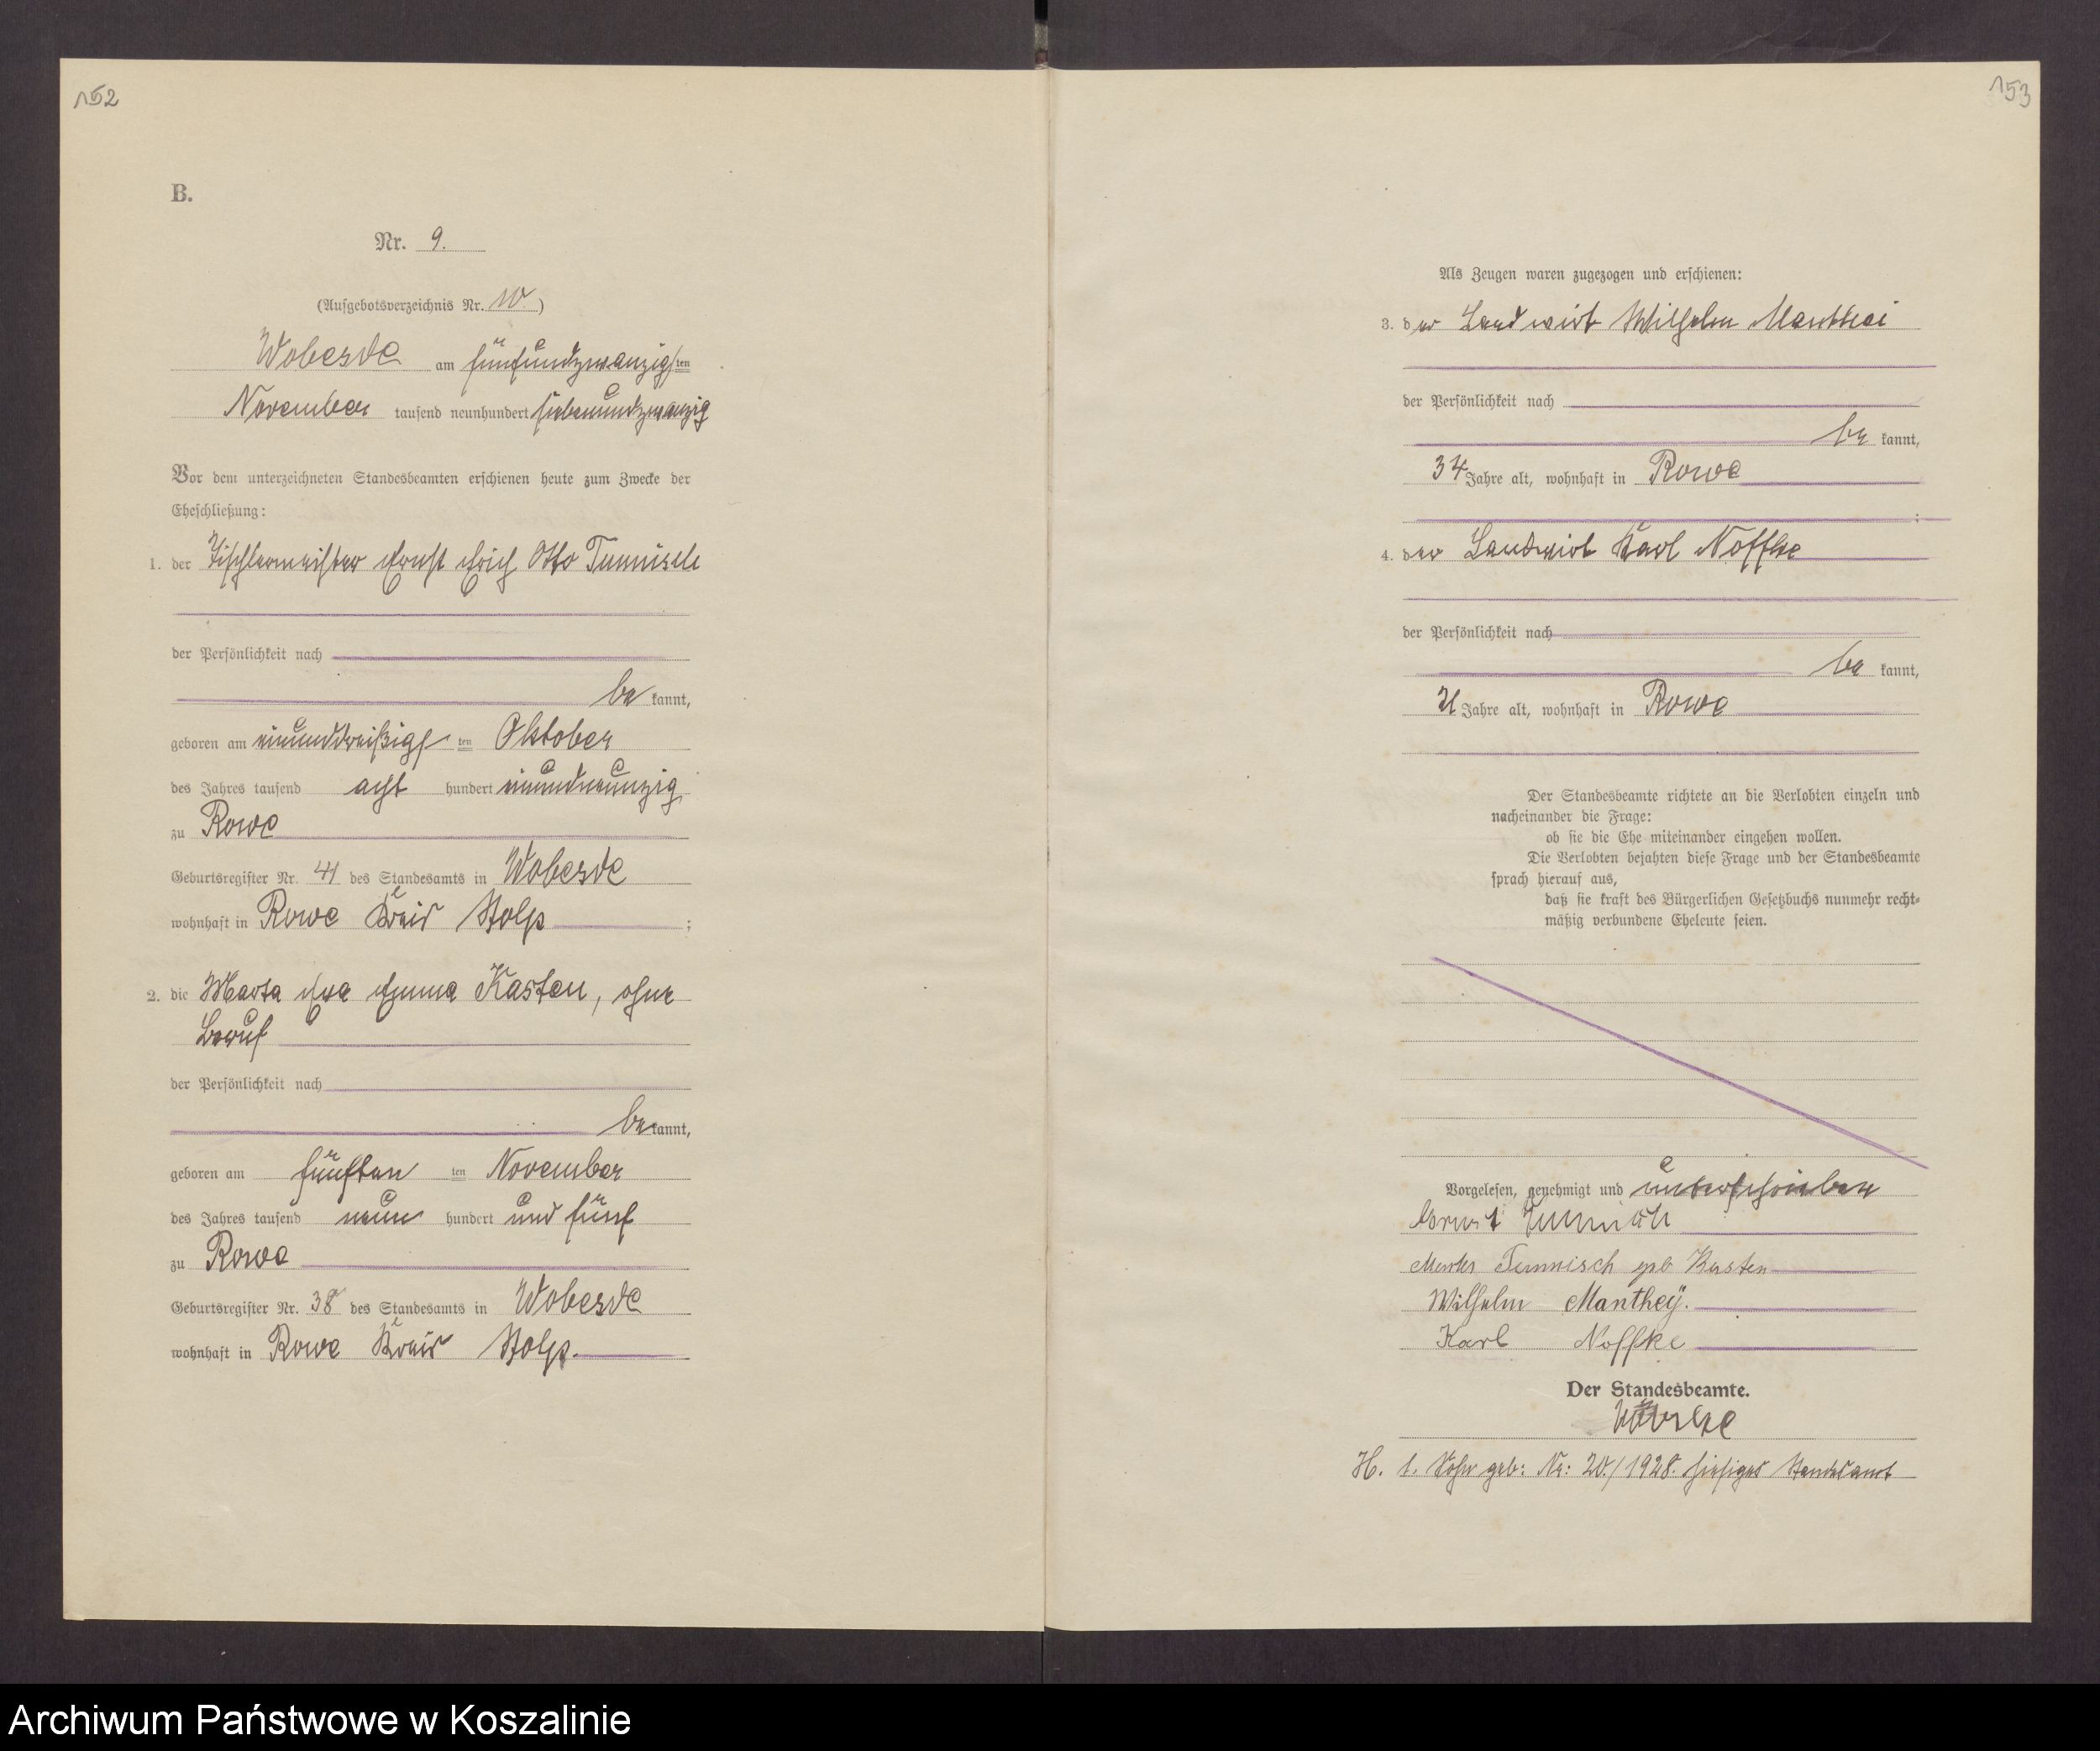 152
B.
Nr. 9.
(Aufgebotsverzeichnis Nr. 10.)
Wobesde am fünfundzwanzigsten
November tausend neunhundert siebenundzwanzig
Vor dem unterzeichneten Standesbeamten erschienen heute zum Zwecke der
Eheschließung:
1. der Tischlermeister Ernst Erich Otto Tumisch
der Persönlichkeit nach
be kannt,
geboren am einunddreißigs ten Oktober
des Jahres tausend acht hundert einundneunzig
zu Rowe
Geburtsregister Nr. 41 des Standesamts in Wobesde
wohnhaft in Rowe Kreis Stolp ;
2. die Marta Eva Emma Kasten, ohne
Beruf
der Persönlichkeit nach
be kannt,
geboren am fünften ten November
des Jahres tausend neun hundert und fünf
zu Rowe
Geburtsregister Nr. 38 des Standesamts in Wobesde
wohnhaft in Rowe Kreis Stolp.
153
Als Zeugen waren zugezogen und erschienen:
3. der Landwirt Wilhelm Manthei
der Persönlichkeit nach
be kannt,
34 Jahre alt, wohnhaft in Rowe
;
4. der Landwirt Karl Noffke
der Persönlichkeit nach
be kannt,
Jahre alt, wohnhaft in Rowe
Der Standesbeamte richtete an die Verlobten einzeln und
nacheinander die Frage:
ob sie die Ehe miteinander eingehen wollen.
Die Verlobten bejahten diese Frage und der Standesbeamte
sprach hierauf aus,
daß sie kraft des Bürgerlichen Gesetzbuchs nunmehr recht-
mäßig verbundene Eheleute seien.
Vorgelesen, genehmigt und unterschrieben
Ernst
Marta geb Kasten
Wilhelm Mantheÿ.
Karl Noffke
Der Standesbeamte.
H. 1. Sohn geb: Nr: 20./1928. hiesiges Standesamt
Archiwum Państwowe w Koszalinie